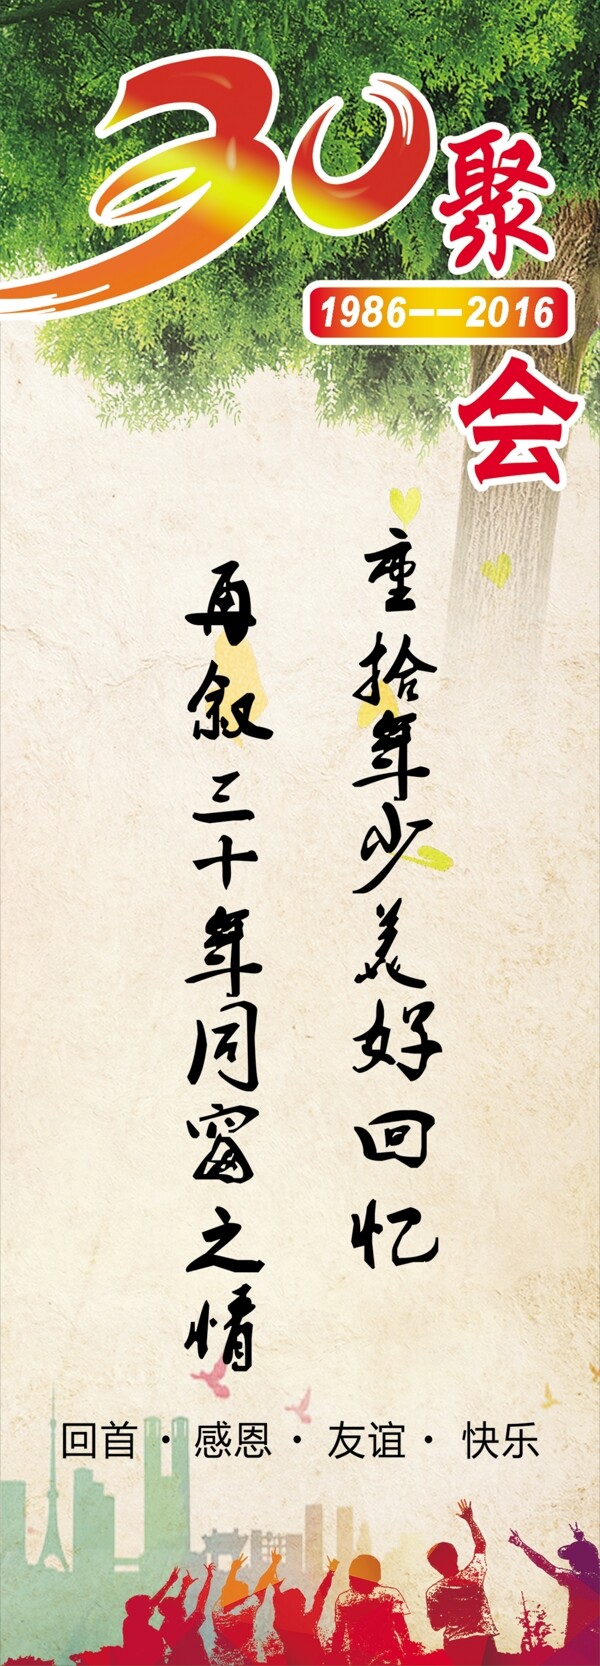 30
聚
1986——2016
会
重拾年少美好回忆
再叙三十年同窗之情
回首·感恩·友谊·快乐